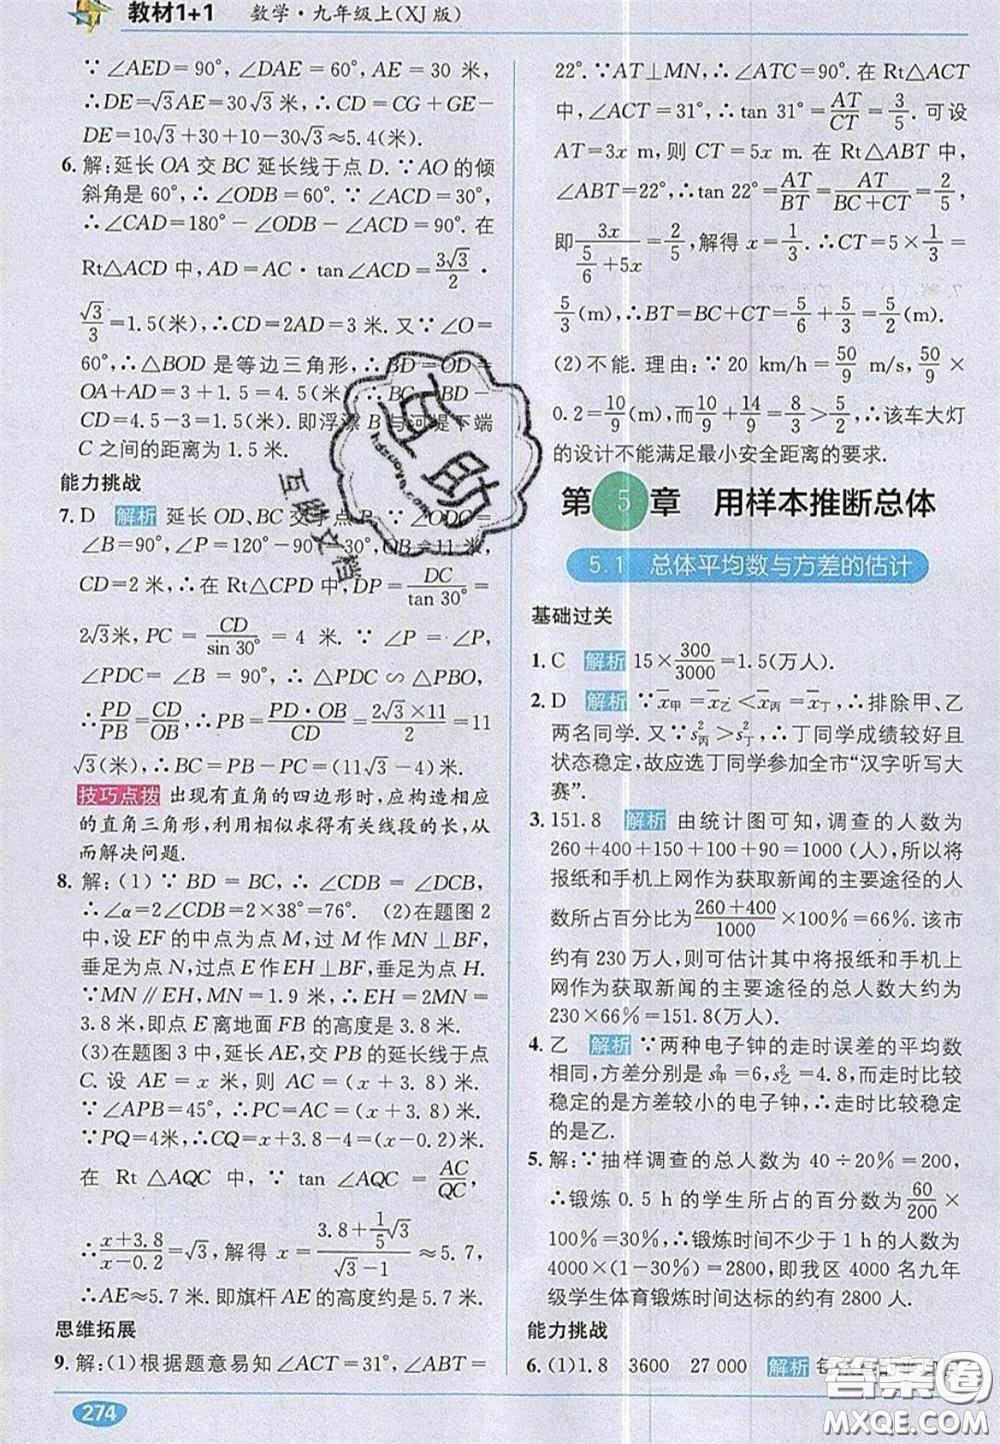 教材1+1 数学·九年级上(XJ版)
∵∠AED=90°,∠DAE=60°,AE=30 米,
∴DE=√3AE=30√3米.∴CD=CG+GE-
DE=10√3+30+10-30√3≈5.4(米).
6. 解:延长OA交BC延长线于点D.∵AO的倾
斜角是60°,∴∠ODB=60°.∵∠ACD=30°,
∴∠CAD=180°-∠ODB-∠ACD=90°.在
Rt△ACD中,AD=AC·tan∠ACD=3√3/2·
√3/3=1.5(米),∴CD=2AD=3米.又∵∠O=
60°,∴△BOD是等边三角形,∴BD=OD=
OA+AD=3+1.5=4.5(米).∴BC=BD-
CD=4.5-3=1.5(米).即浮漂B与河堤下端
C之间的距离为1.5米.
能力挑战
7. D 解析 延长OD、BC交于点P.∵∠ODC=
∠B=90°,∠P=120°-90°=30°,∠PDC=
90°,∴在Rt△CPD中,DP=DC/tan 30°=
2√3米,PC=CD/sin 30°=4米.∵∠P=∠P,
∠PDC=∠B=90°,∴△PDC∽△PBO,
∴PD/PB=CD/OB,∴PB=PD·OB/CD=2√3×11/2=11
√3(米),∴BC=PB-PC=(11√3-4)米.
技巧点拨 出现有直角的四边形时,应构造相应
的直角三角形,利用相似求得有关线段的长,从
而解决问题.
8. 解:(1)∵BD=BC,∴∠CDB=∠DCB,
∴∠α=2∠CDB=2×38°=76°. (2)在题图2
中,设EF的中点为点M,过点M作MN⊥BF,
垂足为点N,过点E作EH⊥BF,垂足为点H.
∵MN∥EH,MN=1.9米,∴EH=2MN=
3.8米,即点E离地面FB的高度是3.8米.
(3)在题图3中,延长AE,交PB的延长线于点
C.设AE=x米,则AC=(x+3.8)米.
∵∠APB=45°,∴PC=AC=(x+3.8)米.
∵PQ=4米,∴CQ=x+3.8-4=x-0.2(米).
在Rt△AQC中,∵tan∠AQC=AC/QC,
∴x+3.8/x-0.2=√3,解得x=3.8+1/5√3/√3-1≈5.7,
∴AE≈5.7米.即旗杆AE的高度是5.7米.
思维拓展
9. 解:(1)根据题意易知∠ACT=31°,∠ABT=
274
22°.∵AT⊥MN,∴∠ATC=90°.在Rt△ACT
中,∠ACT=31°,∴tan 31°=AT/CT=3/5.可设
AT=3x m,则CT=5x m.在Rt△ABT中,
∠ABT=22°,∴tan 22°=AT/BT=AT/BC+CT=2/5,
即3x/5/6+5x=2/5,解得x=1/3.∴CT=5×1/3=
5/3(m),∴BT=BC+CT=5/6+5/3=5/2(m).
(2)不能.理由:∵20 km/h=50/9 m/s,50/9×
0.2=10/9(m),而10/9+14/9=8/3>5/2,∴该车大灯
的设计不能满足最小安全距离的要求.
第5章 用样本推断总体
5.1 总体平均数与方差的估计
基础过关
1. C 解析 15×300/3000=1.5(万人).
2. D 解析 ∵x̄甲=x̄乙<x̄丙=x̄丁,∴排除甲、乙
两名同学.又∵s²丙>s²丁,∴丁同学成绩较好且
状态稳定,故应选丁同学参加全市“汉字听写大
赛”.
3. 151.8 解析 由统计图可知,调查的人数为
260+400+150+100+90=1000(人),所以
将报纸和手机上网作为获取新闻的主要途径的人
数所占百分比为260+400/1000×100%=66%.该市
约有230万人,则可估计其中将报纸和手机上
网作为获取新闻的主要途径的总人数大约为
230×66%=151.8(万人).
4. 乙 解析 ∵两种电子钟的走时误差的平均数
相同,方差分别是s²甲=6,s²乙=4.8,而走时稳定
的是方差较小的电子钟,∴走时比较稳定
的是乙.
5. 解:∵抽样调查的总人数为40÷20%=200,
∴锻炼0.5 h的学生所占的百分数为60/200×
100%=30%,∴锻炼时间不少于1 h的人数为
4000×(1-30%)=2800,即我区4000名九年
级学生体育锻炼时间达标的约有2800人.
能力挑战
6. (1)1.8 3600 27 000 解析
互助
hdzuoye.com
互助文档
答案圈
MXQE.COM